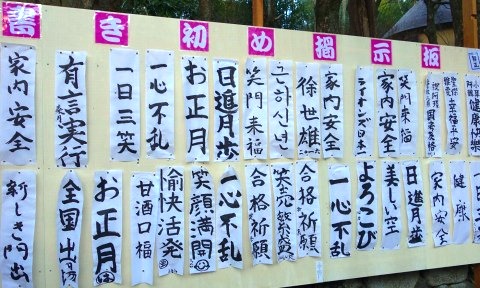 書き初め掲示板
家内安全
有言実行
一日三笑
一心不乱
お正月
日進月歩
笑門来福
근하신년
徐世雄
家内安全
ライオンズ日本一
家内安全
笑門来福
幸福平安
健康快樂
新しき門出
全国出場
お正月
甘酒口福
愉快活発
笑顔満開
一心不乱
合格祈願
笑売繁盛
合格祈願
一心不乱
よろこび
美しい空
日進月歩
家内安全
健康